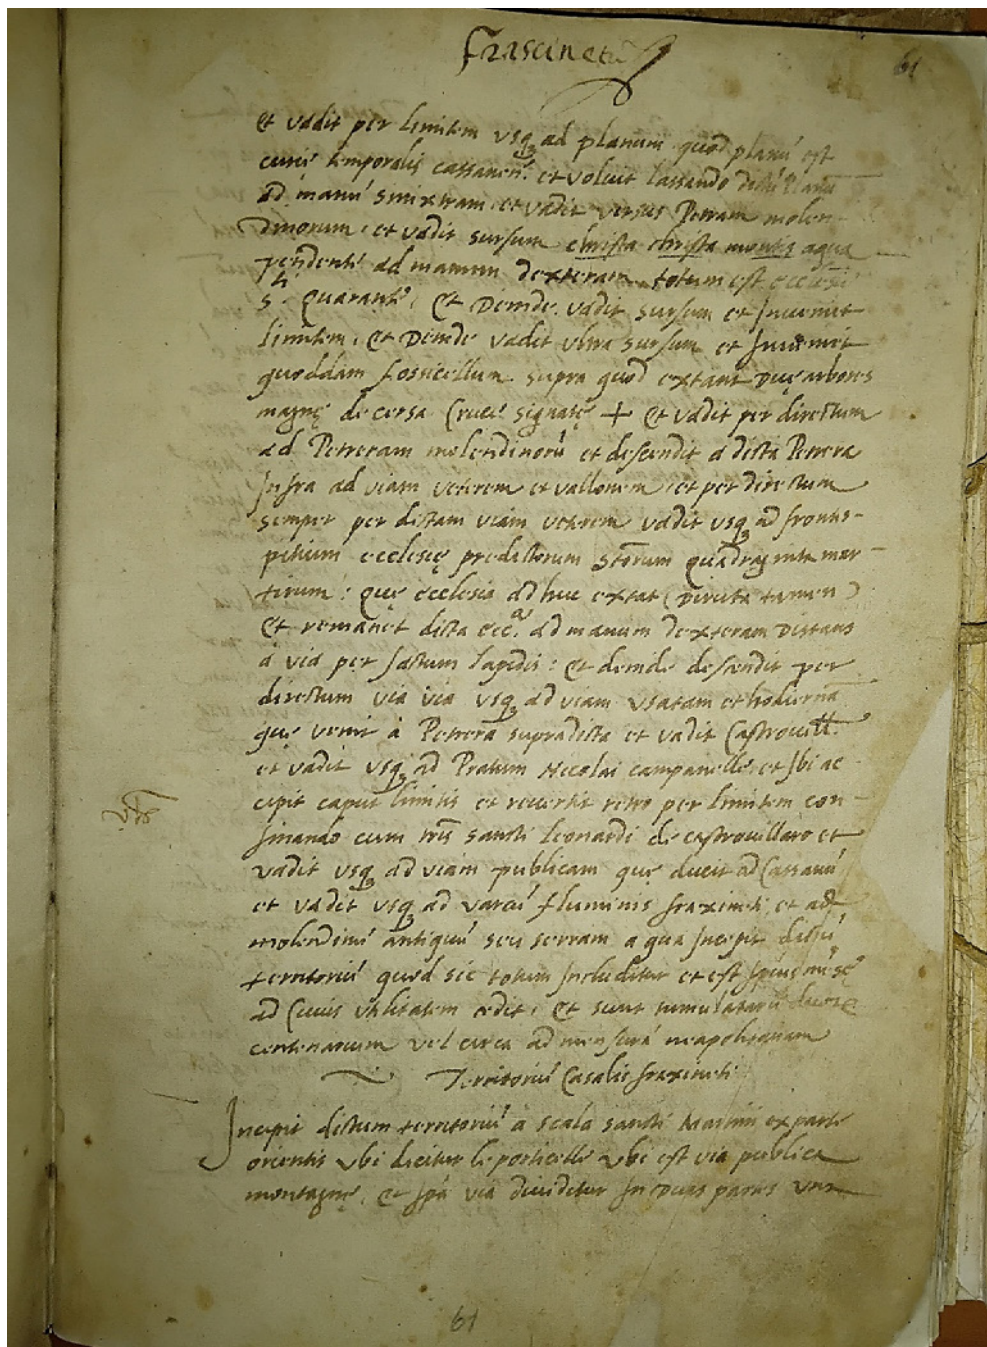 Frascinetū
61
et vadit per limitem usq3 ad planum quod planū est
curię temporalis cassanen̄: et voluit lassando dictū planū
ad manū sinixtram, et vadit versus Petram molen-
dinorum, et vadit sursum christa christa montis aqua
pendenti ad manum dexteram totum est
S.ti Quarantę, Et Deinde vadit sursum et Invenit
limitem, et Deinde vadit ultra sursum et Invenit
quoddam fossicellum supra quod extant duę arbores
magnę de cersa Cruce signatę + Et vadit per directum
ad Petreram molendinorū et descendit a dicta Petrera
Infra ad viam veterem et vallonem, et per directum
semper per dictam viam veterem vadit usq3 ad frontis-
pitium ecclesię predictorum Storum quadraginta mar-
tirum: quę ecclesia adhuc extat (Diruta tamen)
Et romanet dicta ecc.a ad manum dexteram Distans
a via per Jactum lapidis: Et deinde descendit per
directum via via usq3 ad viam usatam et hodiernā
quę venit à Petrera supradicta et vadit Castrouill.
et vadit usq3 ad Pratum Nicolai campanelle, et Ibi ac-
cipit caput limitis et revertit retro per limitem con-
finando cum trīs sancti Leonardi de castrouillaro et
vadit usq3 ad viam publicam quę ducit ad Cassanū
et vadit usq3 ad varcū fluminis fraxineti, et ad
molendinū antiquū seu serram a qua Incepit dictū
territoriū quod sic totum Includitur et est Ipsius
ad Cuius utilitatem cedit, Et sunt tumulatarū
centenarium vel circa ad mensurā neapolitanam
Territoriū Casalis fraxineti
Incipit dictum territoriū à scala sancti Martini ex parte
orientis ubi dicitur le porticelle ubi est via publica
montagnę, Et Ipā via dividitur In duas partes una
61